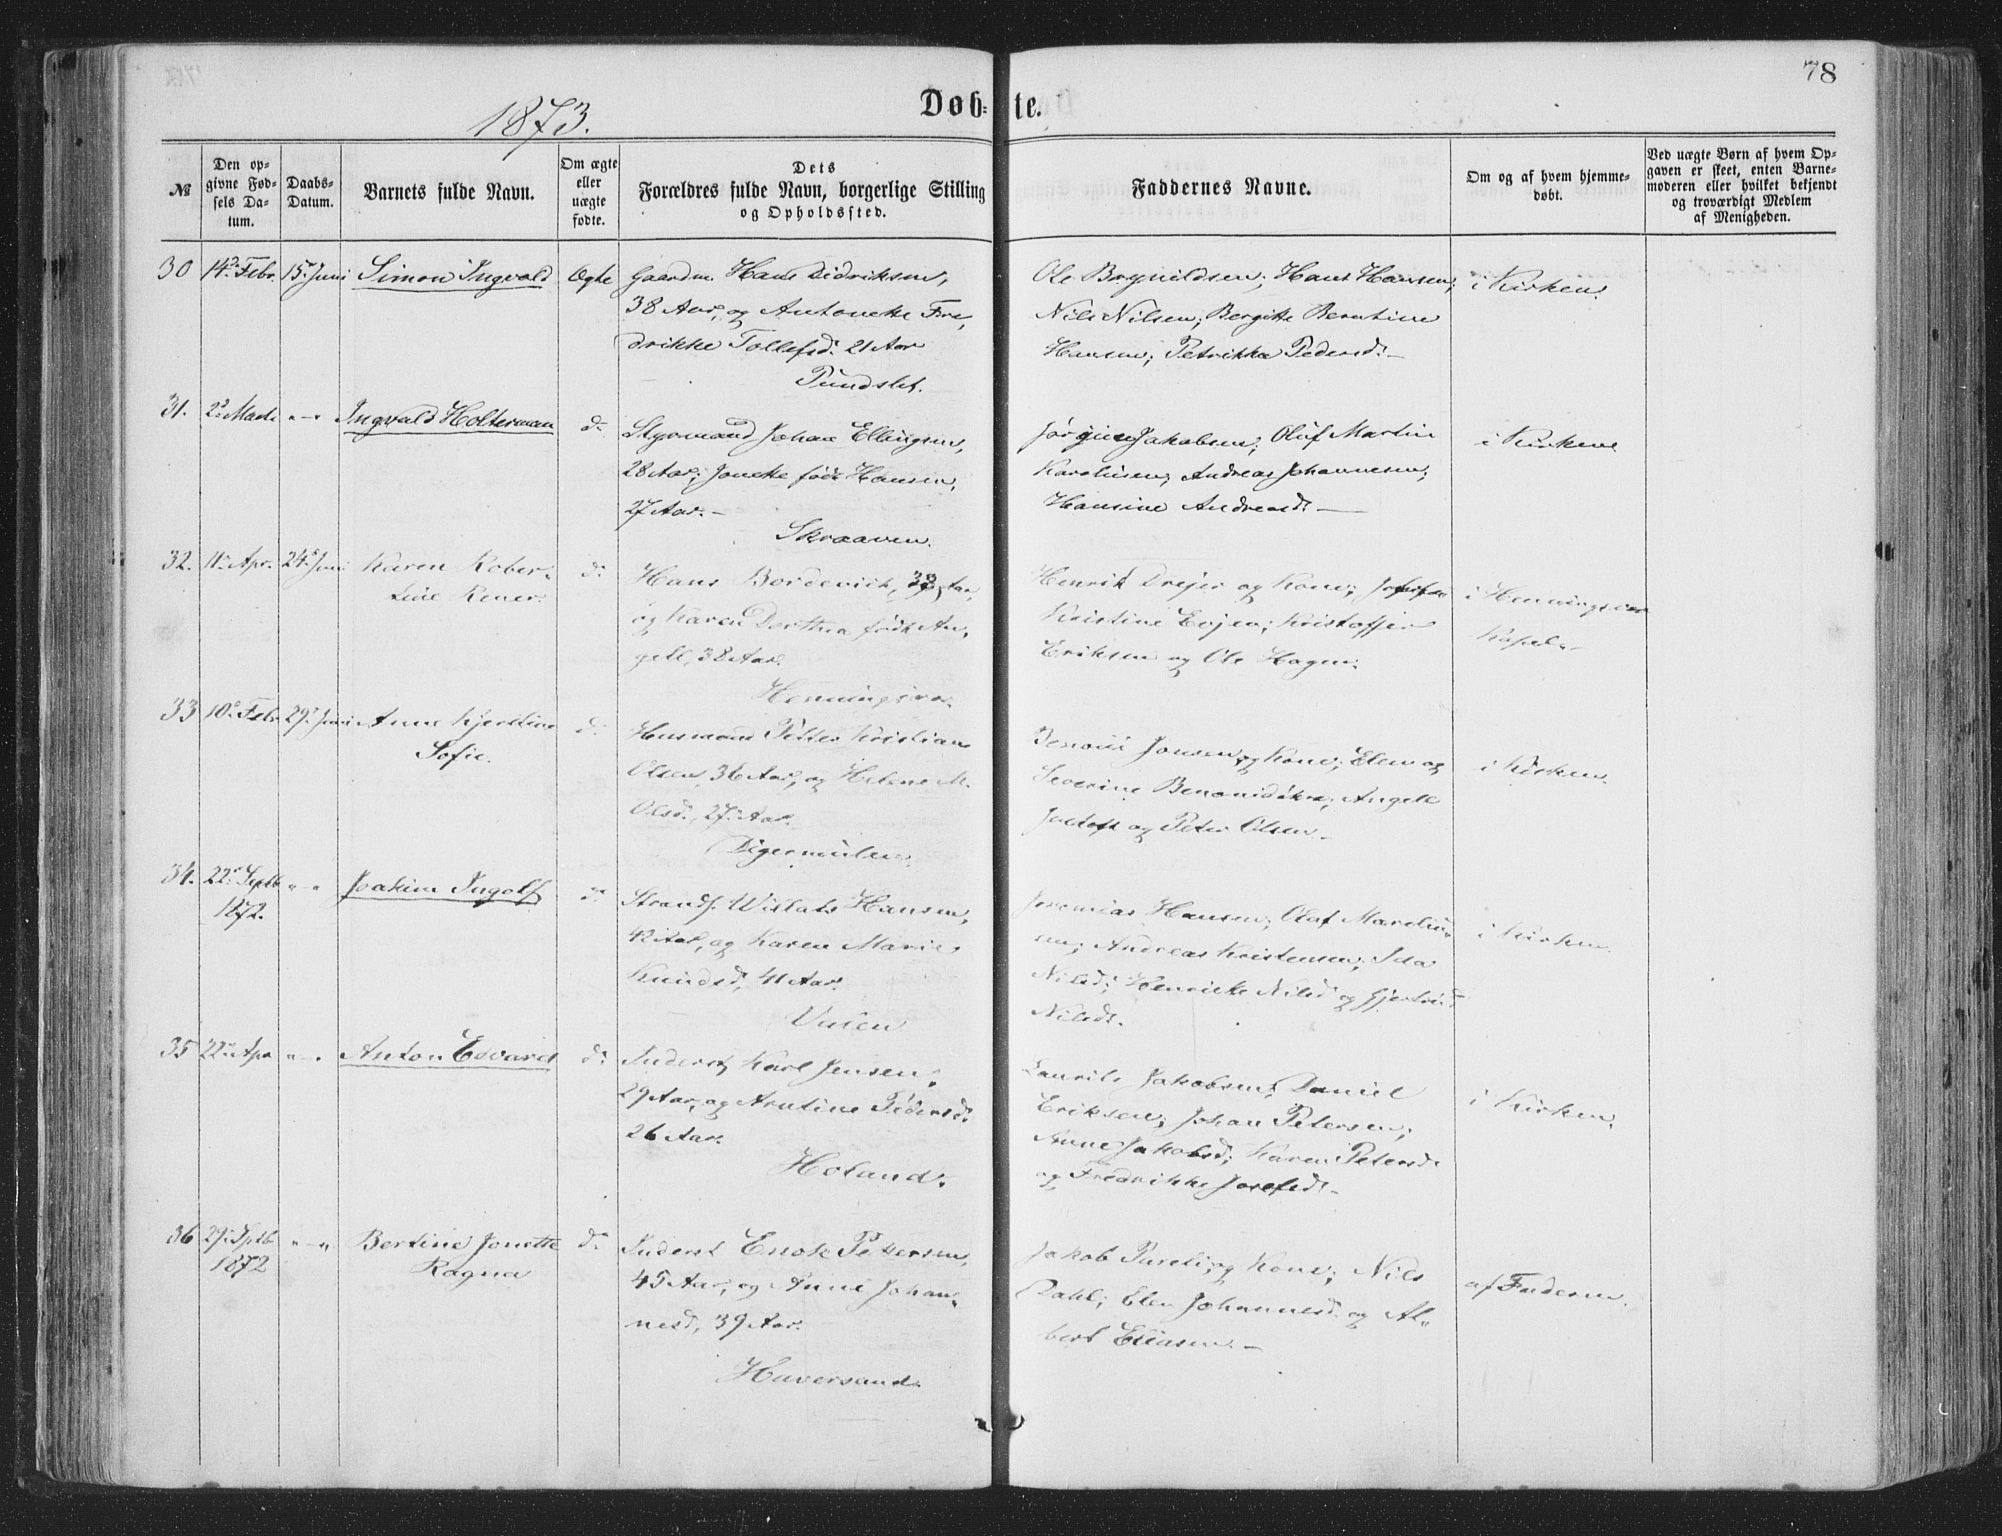 78
1873.
Døb-te.
№
Den op-
givne Fød-
sels Da-
tum.
Daabs-
Datum.
Barnets fulde Navn.
Om ægte
eller
uægte
fødte.
Dets
Forældres fulde Navn, borgerlige Stilling
og Opholdssted.
Faddernes Navne.
Om og af hvem hjemme-
døbt.
Ved uægte Børn af hvem Op-
gaven er skeet, enten Barne-
moderen eller hvilket bekjendt
og troværdigt Medlem
af Menigheden.
30 14de Febr. 15de Juni Simon Ingvald Ægte
Gaardm. Hans Didriksen,
38 Aar, og Antonette Fre-
drikke Tollefsd. 21 Aar
Pundslet.
Ole Brynildsen; Hans Hansen;
Nils Nilsen; Bergitte Berntine
Hansen; Petrikka Pedersd. –
i Kirken.
31. 2de „–„ Ingvald Holterman d.
Styrmand Johan Ellingsen,
28 Aar; Jonette født Hansen,
27 Aar. –
Skraaven.
Jørgine Jakobsen; Oluf Martin
Karolusen; Andreas Johannesen;
Hansine Andreasd. –
i Kirken
32. 11te Apr. 24de Juni Karen Rober-
tine d.
Hans Bordevich, Aar,
og Karen Dorthea født An-
gell, 38 Aar.
Henningsvær.
Henrik Drejer og Kone;
Kristine Evjen; Kristoffer
Eriksen og Ole Hagen.
i Henningsvær
Kapel. –
33 10de Febr. 29de Juni Anne Kjerstine
Sofie. d.
Husmand Petter Kristian
Olsen, 36 Aar, og Helene M.
Olsd., 27 Aar.
Digermulen.
Benoni Jonsen og Kone; Elen og
Severine Benonidøtre; Angell
Justoft og Peter Olsen –
i Kirken.
34. 22de Septb
1872. „–„ Joakim Ingolf d.
Strands. Hansen,
42 Aar, og Karen Marie
Knudsd, 41 Aar.
Valen
Jeremias Hansen; Olaf Mareliu-
sen; Andreas Kristensen; Ida
Nilsd; Henrikke Nilsd og Gjertrud
Nilsd.
i Kirken.
35 22de Apr „–„ Anton Edvard d.
Inderst Karl Jensen,
29 Aar, og Arntine Pedersd.
26 Aar.
Holand.
Laurits Jakobsen; Daniel
Eriksen; Johan Petersen;
Anne Jakobsd; Karen Petersd.
og Fredrikke Josefsd. –
i Kirken.
36 29de Septb
1872 „–„ Bertine Jonette
Ragna d.
Inderst Enok Pettersen,
45 Aar, og Anne Johan-
nesd, 39 Aar.
Haversand.
Jakob Pareli og Kone; Nils
Dahl; Elen Johannesd. og Al-
bert Eliasen. –
af Faderen.